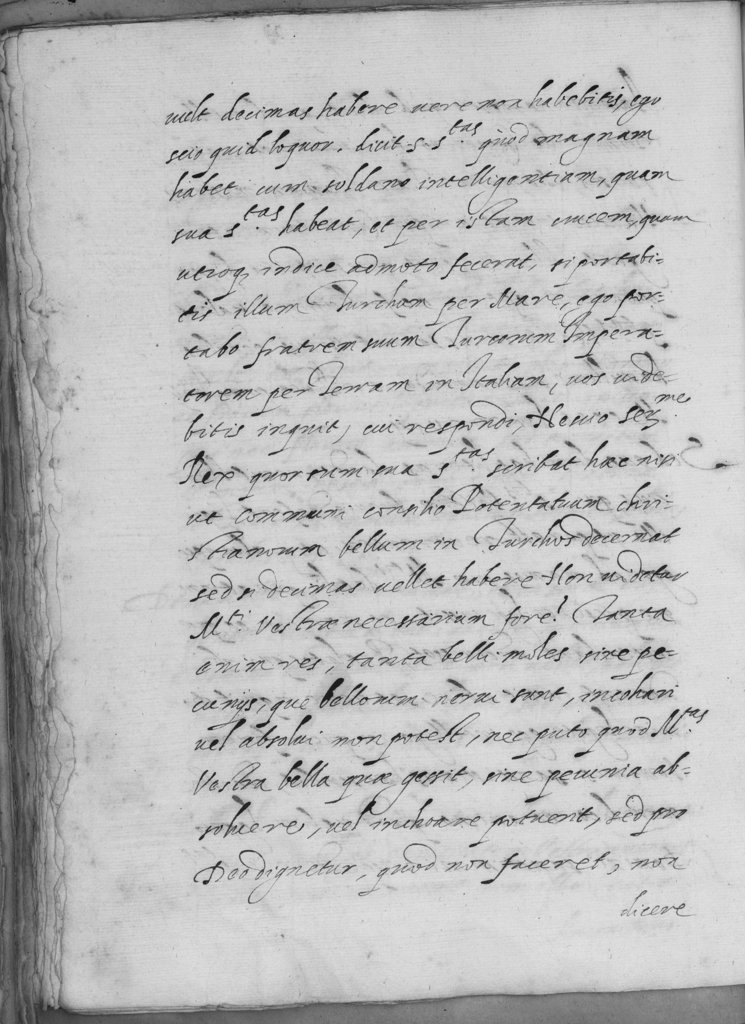 uult decimas habere uere non habebitis, ego
scio quid loquor. dicit S. S.tas quod magnam
habet cum soldano intelligentiam, quam
sua S.tas habeat, et per istam crucem, quam
utroq; indice admoto fecerat, si portabi-
tis illum Turcham per Mare, ego por-
tabo fratrem suum Turcorum Impera-
torem per Terram in Italiam, uos uide-
bitis inquit, cui respondi, Nescio Ser.me
Rex quorsum sua S.tas scribat haec nisi
ut communi consilio Potentatuum chri-
stianorum bellum in Turchos decernat
sed si decimas uellet habere Non uidetur
M.ti Vestrae necessarium fore! Tanta
enim res, tanta belli moles sine pe-
cunijs, quę bellorum nerui sunt, incohari
uel absolui non potest, nec puto quod M.tas
Vestra bella quae gessit, sine pecunia ab-
soluere, uel inchoare potuerit, sed pro
Deo dignetur, quod non faceret, non
dicere